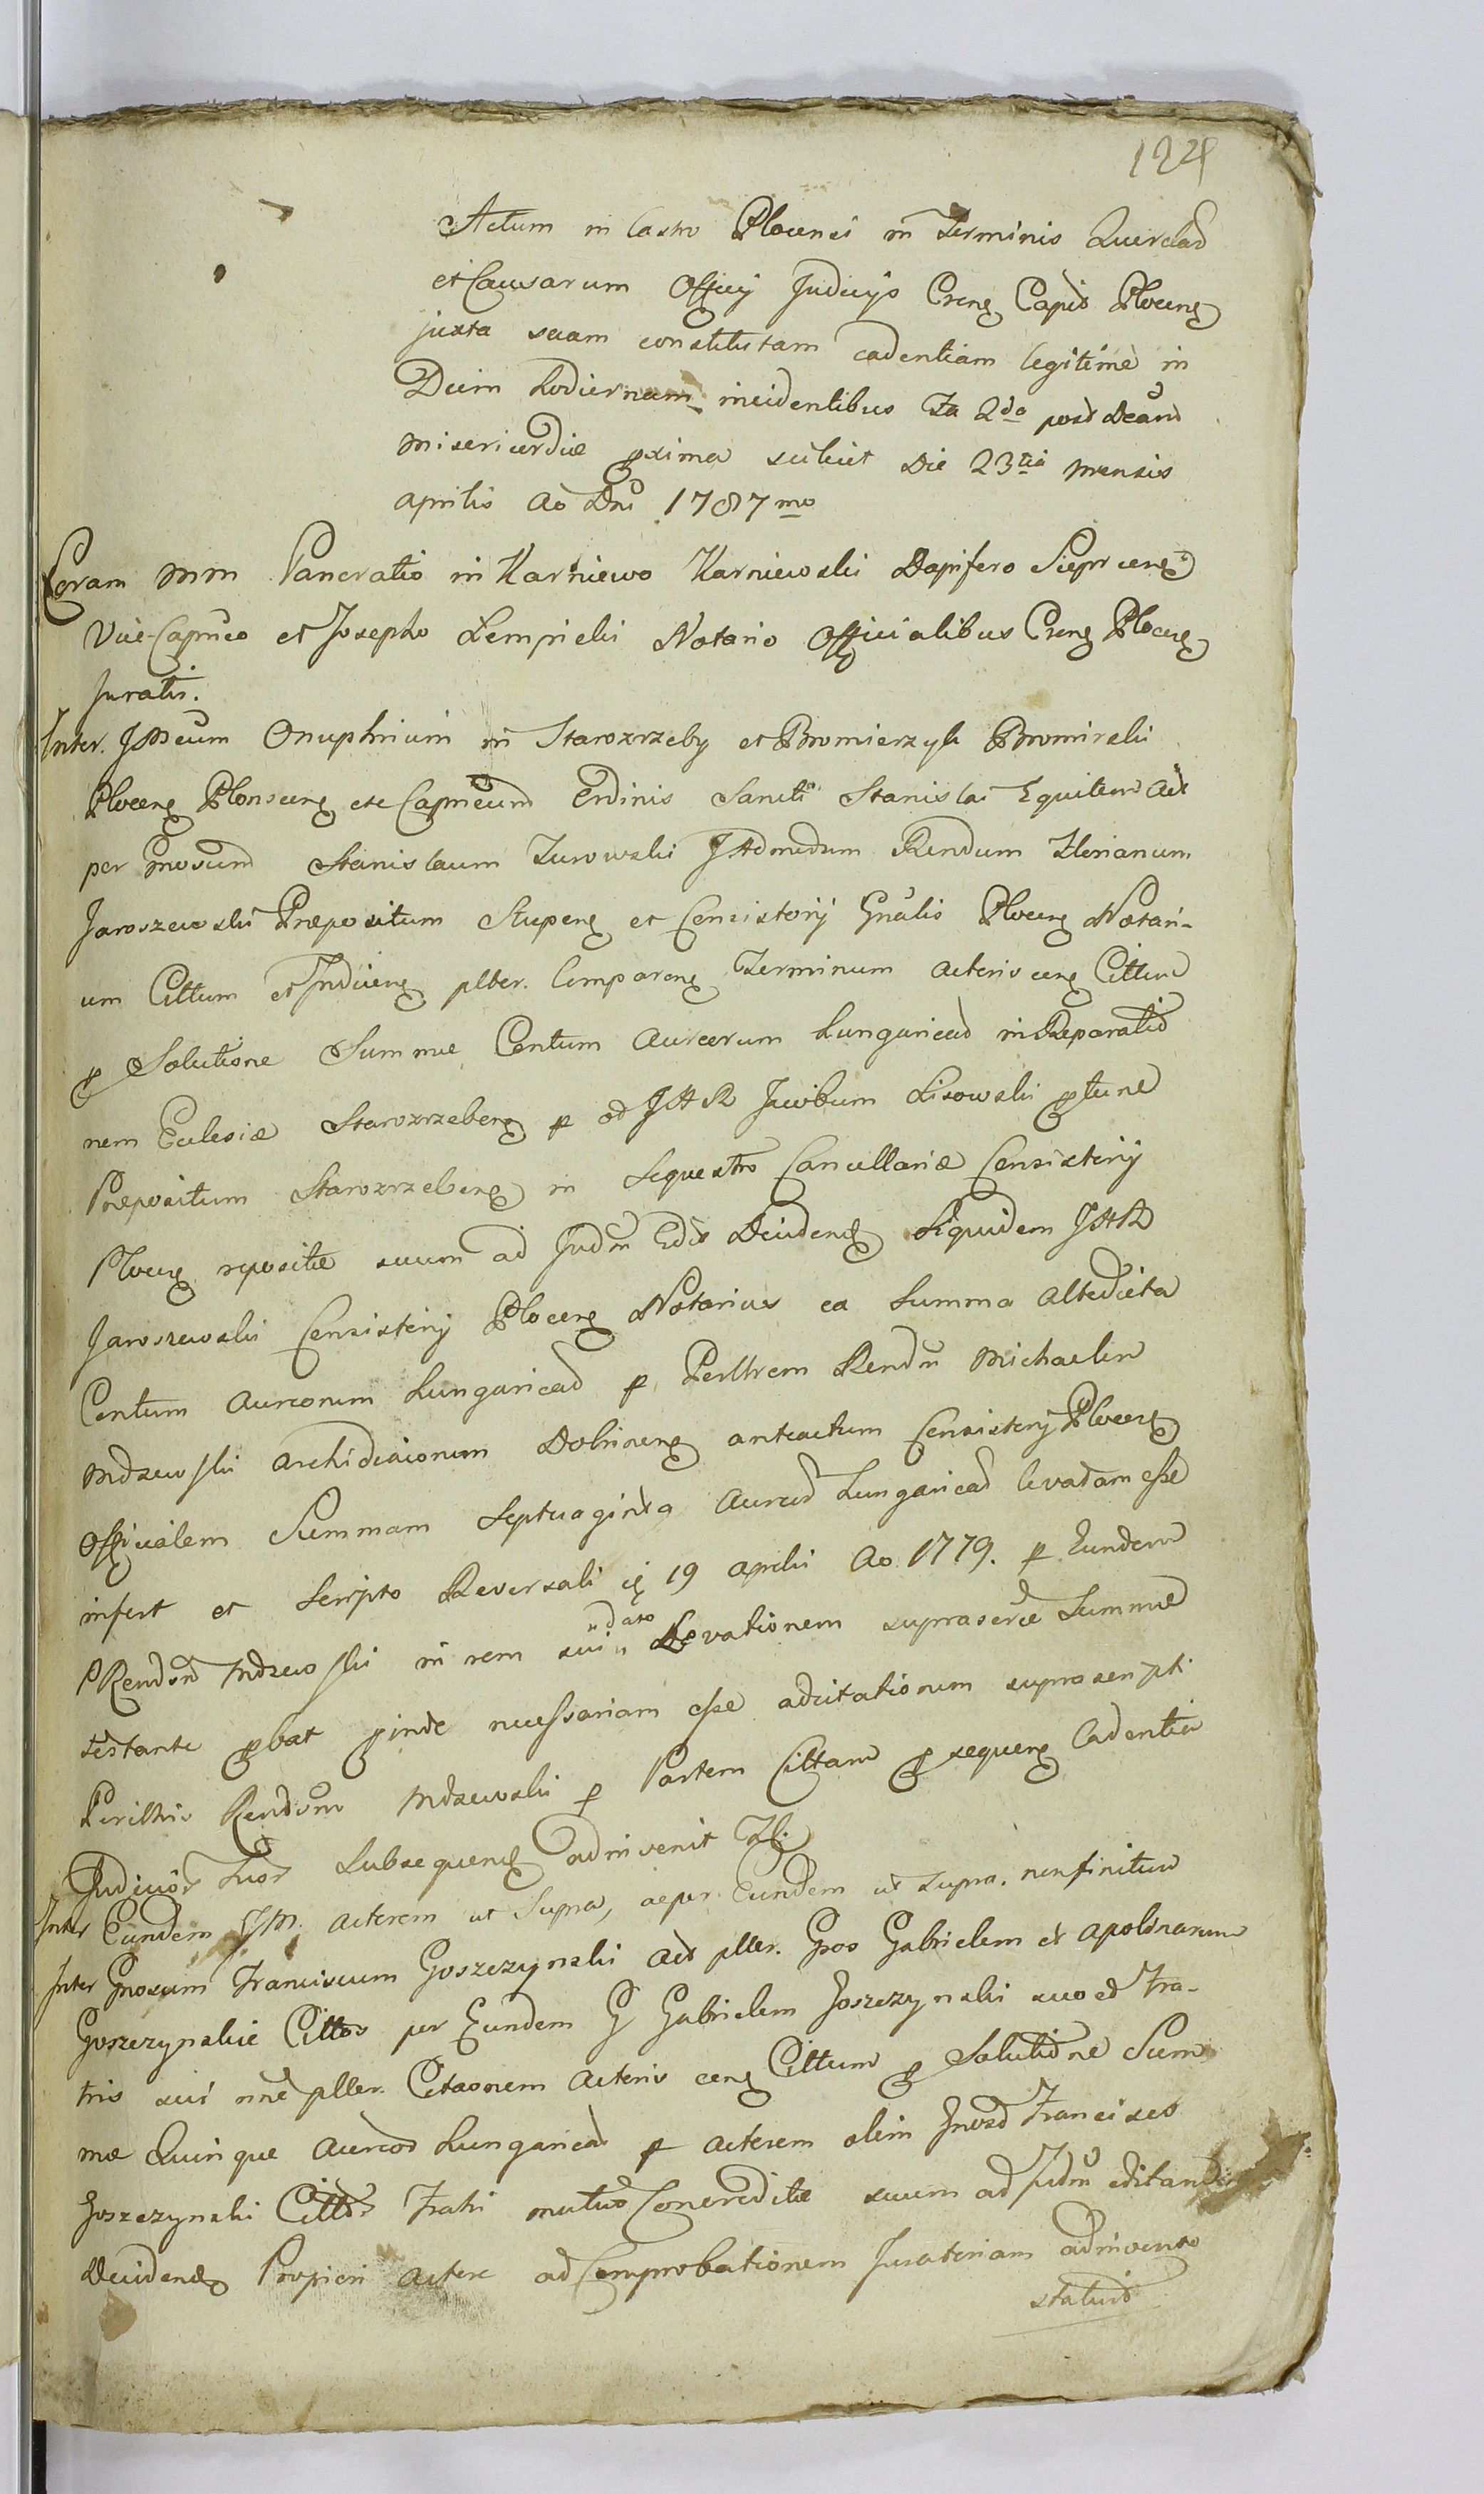 124
Actum in Castro Plocensi in Terminis Querelaru
et Causarum Officij Judicijs Crens Capit Plocens
juxta suam constitutam cadentiam legitime in
Diem hodiernam incidentibus Fa 2da post Dcam
Misericordiæ pxima scilicet Die 23tia mensis
Aprilis Ao Dni 1787mo
Coram MM Pancratio in Karniewo Karniewski Dapifero Sieprcens
Vice-Capneo et Josepho Lempicki Notario Officialibus Crens Plocens
Juratis.
Inter. JMcum Onuphrium in Staroxrzeby et Bromierzyk Bromirski
Plocens Plonscens etc Capneum Ordinis Sancti Stanislai Equitem Act
per Gnosum Stanislaum Zurowski JAdmodum Rendum Florianum
Jaroszewski Præpositum Slupens et Consistorij Gnalis Plocens Notari-
um Cittum et Judiciens plter. Comparens Terminum actoris cens Cittum
p Solutione Summæ Centum Aureorum hungaricad in Reparatio
nem Eclesiæ Staroxrzebens p od JAR Jacobum Lisowski ptunc
Præpositum Staroxrzebens in Sequestro Cancellariæ Consistorij
Plocens repositæ suum ad Judm Edit Deidens Siquidem JAR
Jaroszewski Consistorij Plocens Notarius ea Summa altedicta
Centum Aureorum hungaricad p Perllrem Rendm Michaelem
Mdzewski Archidiaconum Dobrinens anteactum Consistorij Plocens
Officialem Summam Septuaginta Aureo hungaricad levatam esse
infert et Scripto Reversali 19 Aprilis Ao 1779. p Eundem
PRendm Mdzewski in rem sui "dato" Levationem suprascrtæ Summæ
testante pbat pinde necessariam esse adcitationem suprascripti
Perillris Rendom Mdzewski p Partem Cittam p sequens Cadentia
Judicior huor Subsequens adinvenit
Inter Eundem JM. actorem ut Supra, ac per Eundem ut supra. nonfinitum
Inter Gnosum Franciscum Goszczynski Act plter. Gsos Gabrielem et Apolinarum
Goszczynskie Cittos per Eundem G Gabrielem Goszczynski suo et Fra-
tris sui nne plter. Citaonem Actoris cens Cittum p Solutione Sum
mæ Quinque Aureor hungaricad p actorem olim Gnosd Francisco
Goszczynski Cittor Fratri mutuo Concreditæ suum ad Judm editandi
Deidens Propiori Actore ad Comprobationem Juratoriam adinvento
statuit